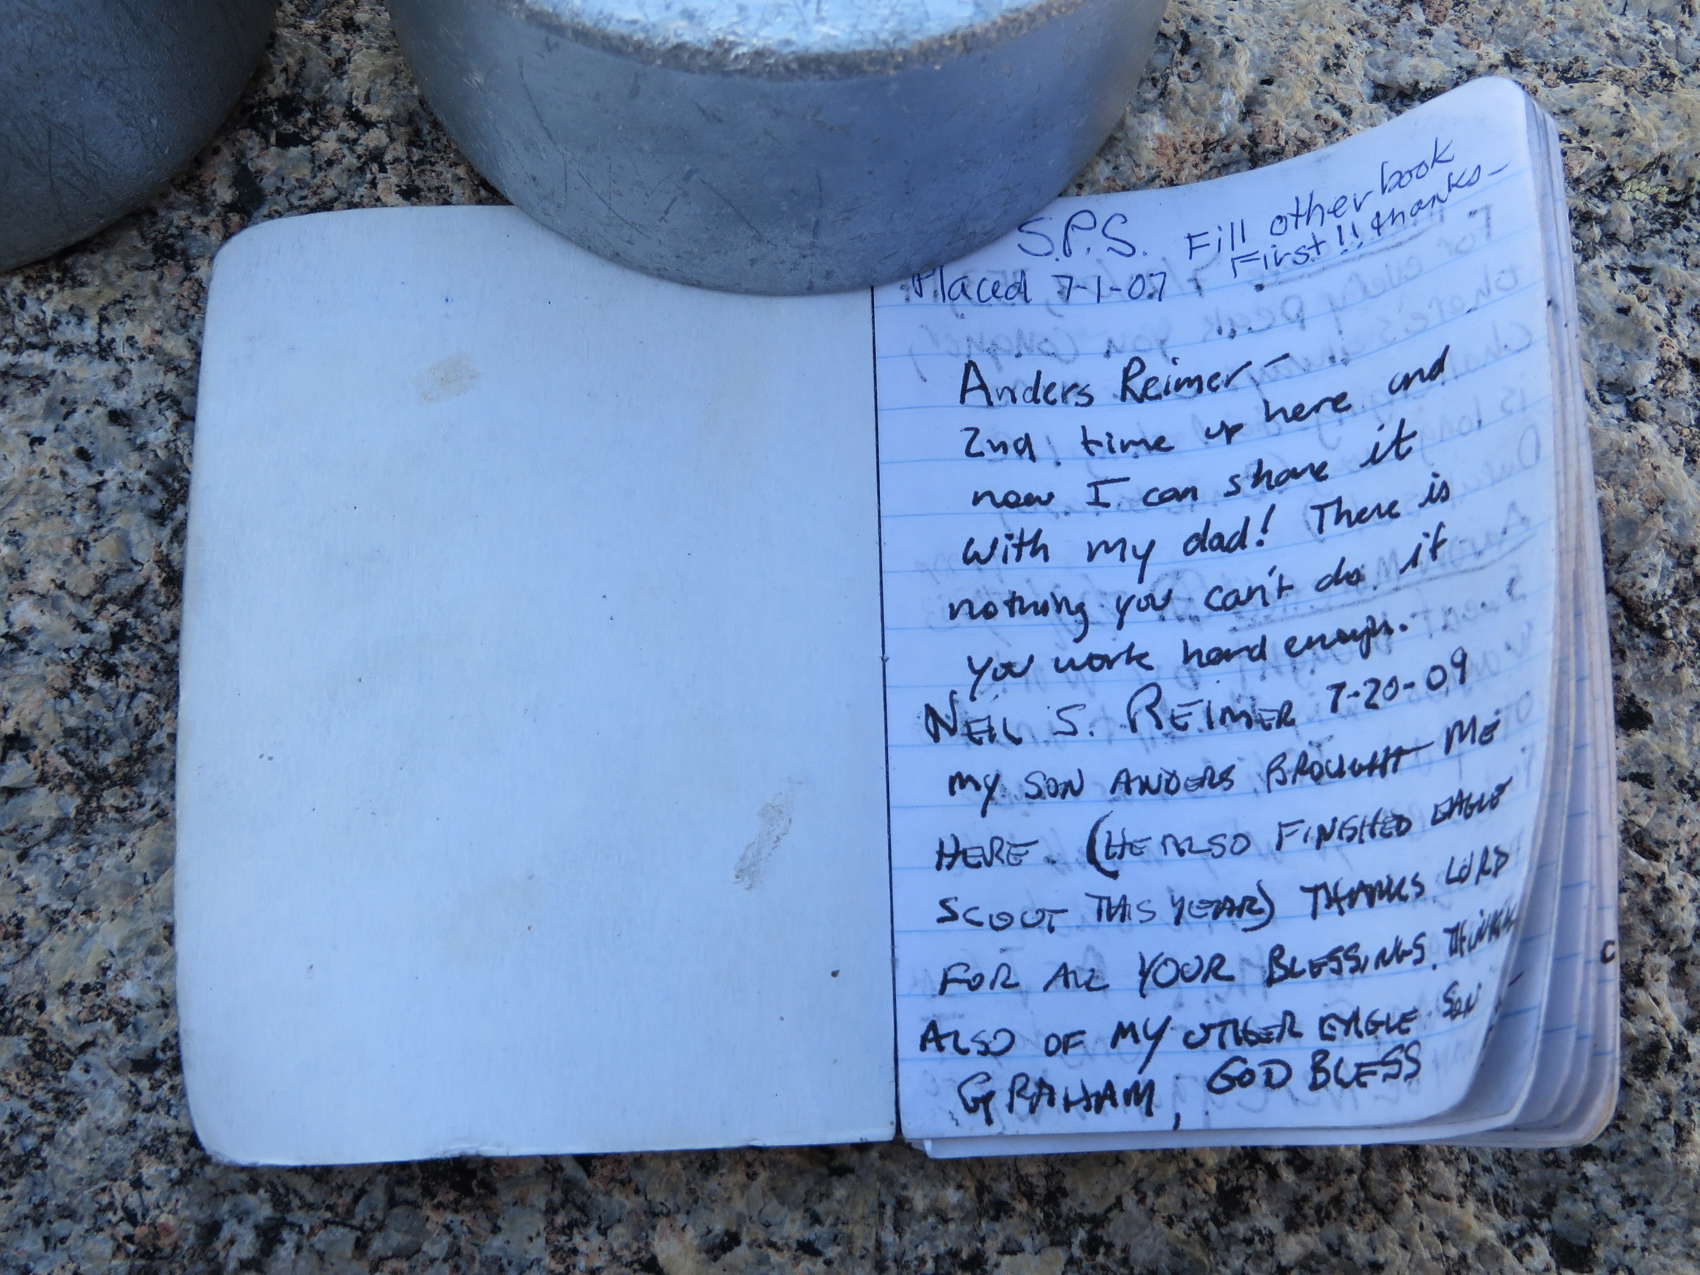 S.P.S. Fill other book
First!! thanks-
Placed 7-1-07
Anders Reimer-
2nd time up here and
now I can share it
with my dad! There is
nothing you can't do if
you work hard enough.
NEIL S. REIMER 7-20-09
MY SON ANDERS BROUGHT ME
HERE. (HE ALSO FINISHED EAGLE
SCOUT THIS YEAR) THANKS LORD
FOR ALL YOUR BLESSINGS.
ALSO OF MY OTHER EAGLE SON
GRAHAM, GOD BLESS